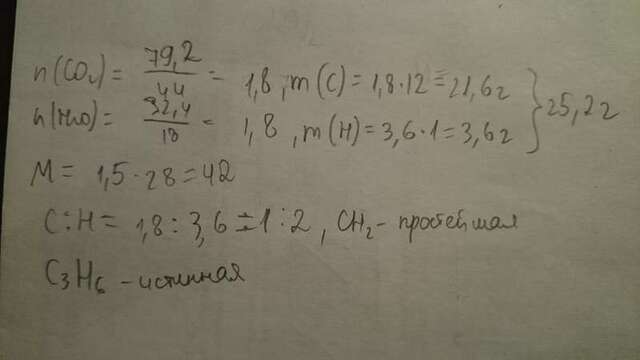 n(CO₂) = 79,2/44 = 1,8, m(C) = 1,8·12 = 21,6г
n(H₂O) = 32,4/18 = 1,8, m(H) = 3,6·1 = 3,6г } 25,2г
M = 1,5·28 = 42
C:H = 1,8:3,6 = 1:2, CH₂ - простейшая
C₃H₆ - истинная